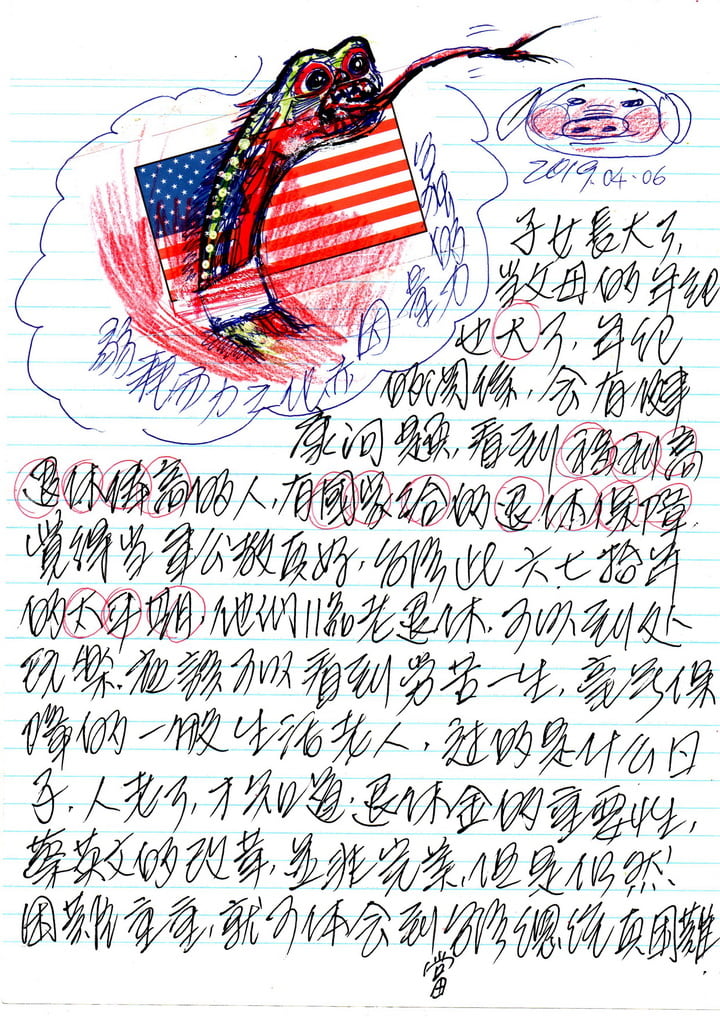 2019.04.06
子女長大了,
當父母的年纪
也大了,年纪
的関係,会有健
康问题,看到福利高
退休俸高的人,有國家给的退休保障,
覺得当年公教真好,台湾此六七拾年
的太平期,他们順老退休,可以到处
玩樂.应該可以看到勞苦一生,毫无保
障的一般生活老人,过的是什么日
子,人老了,才知道退休金的重要性,
蔡英文的改革,並非完美,但是仍然
困難重重,就可体会到當台湾總統真困難.